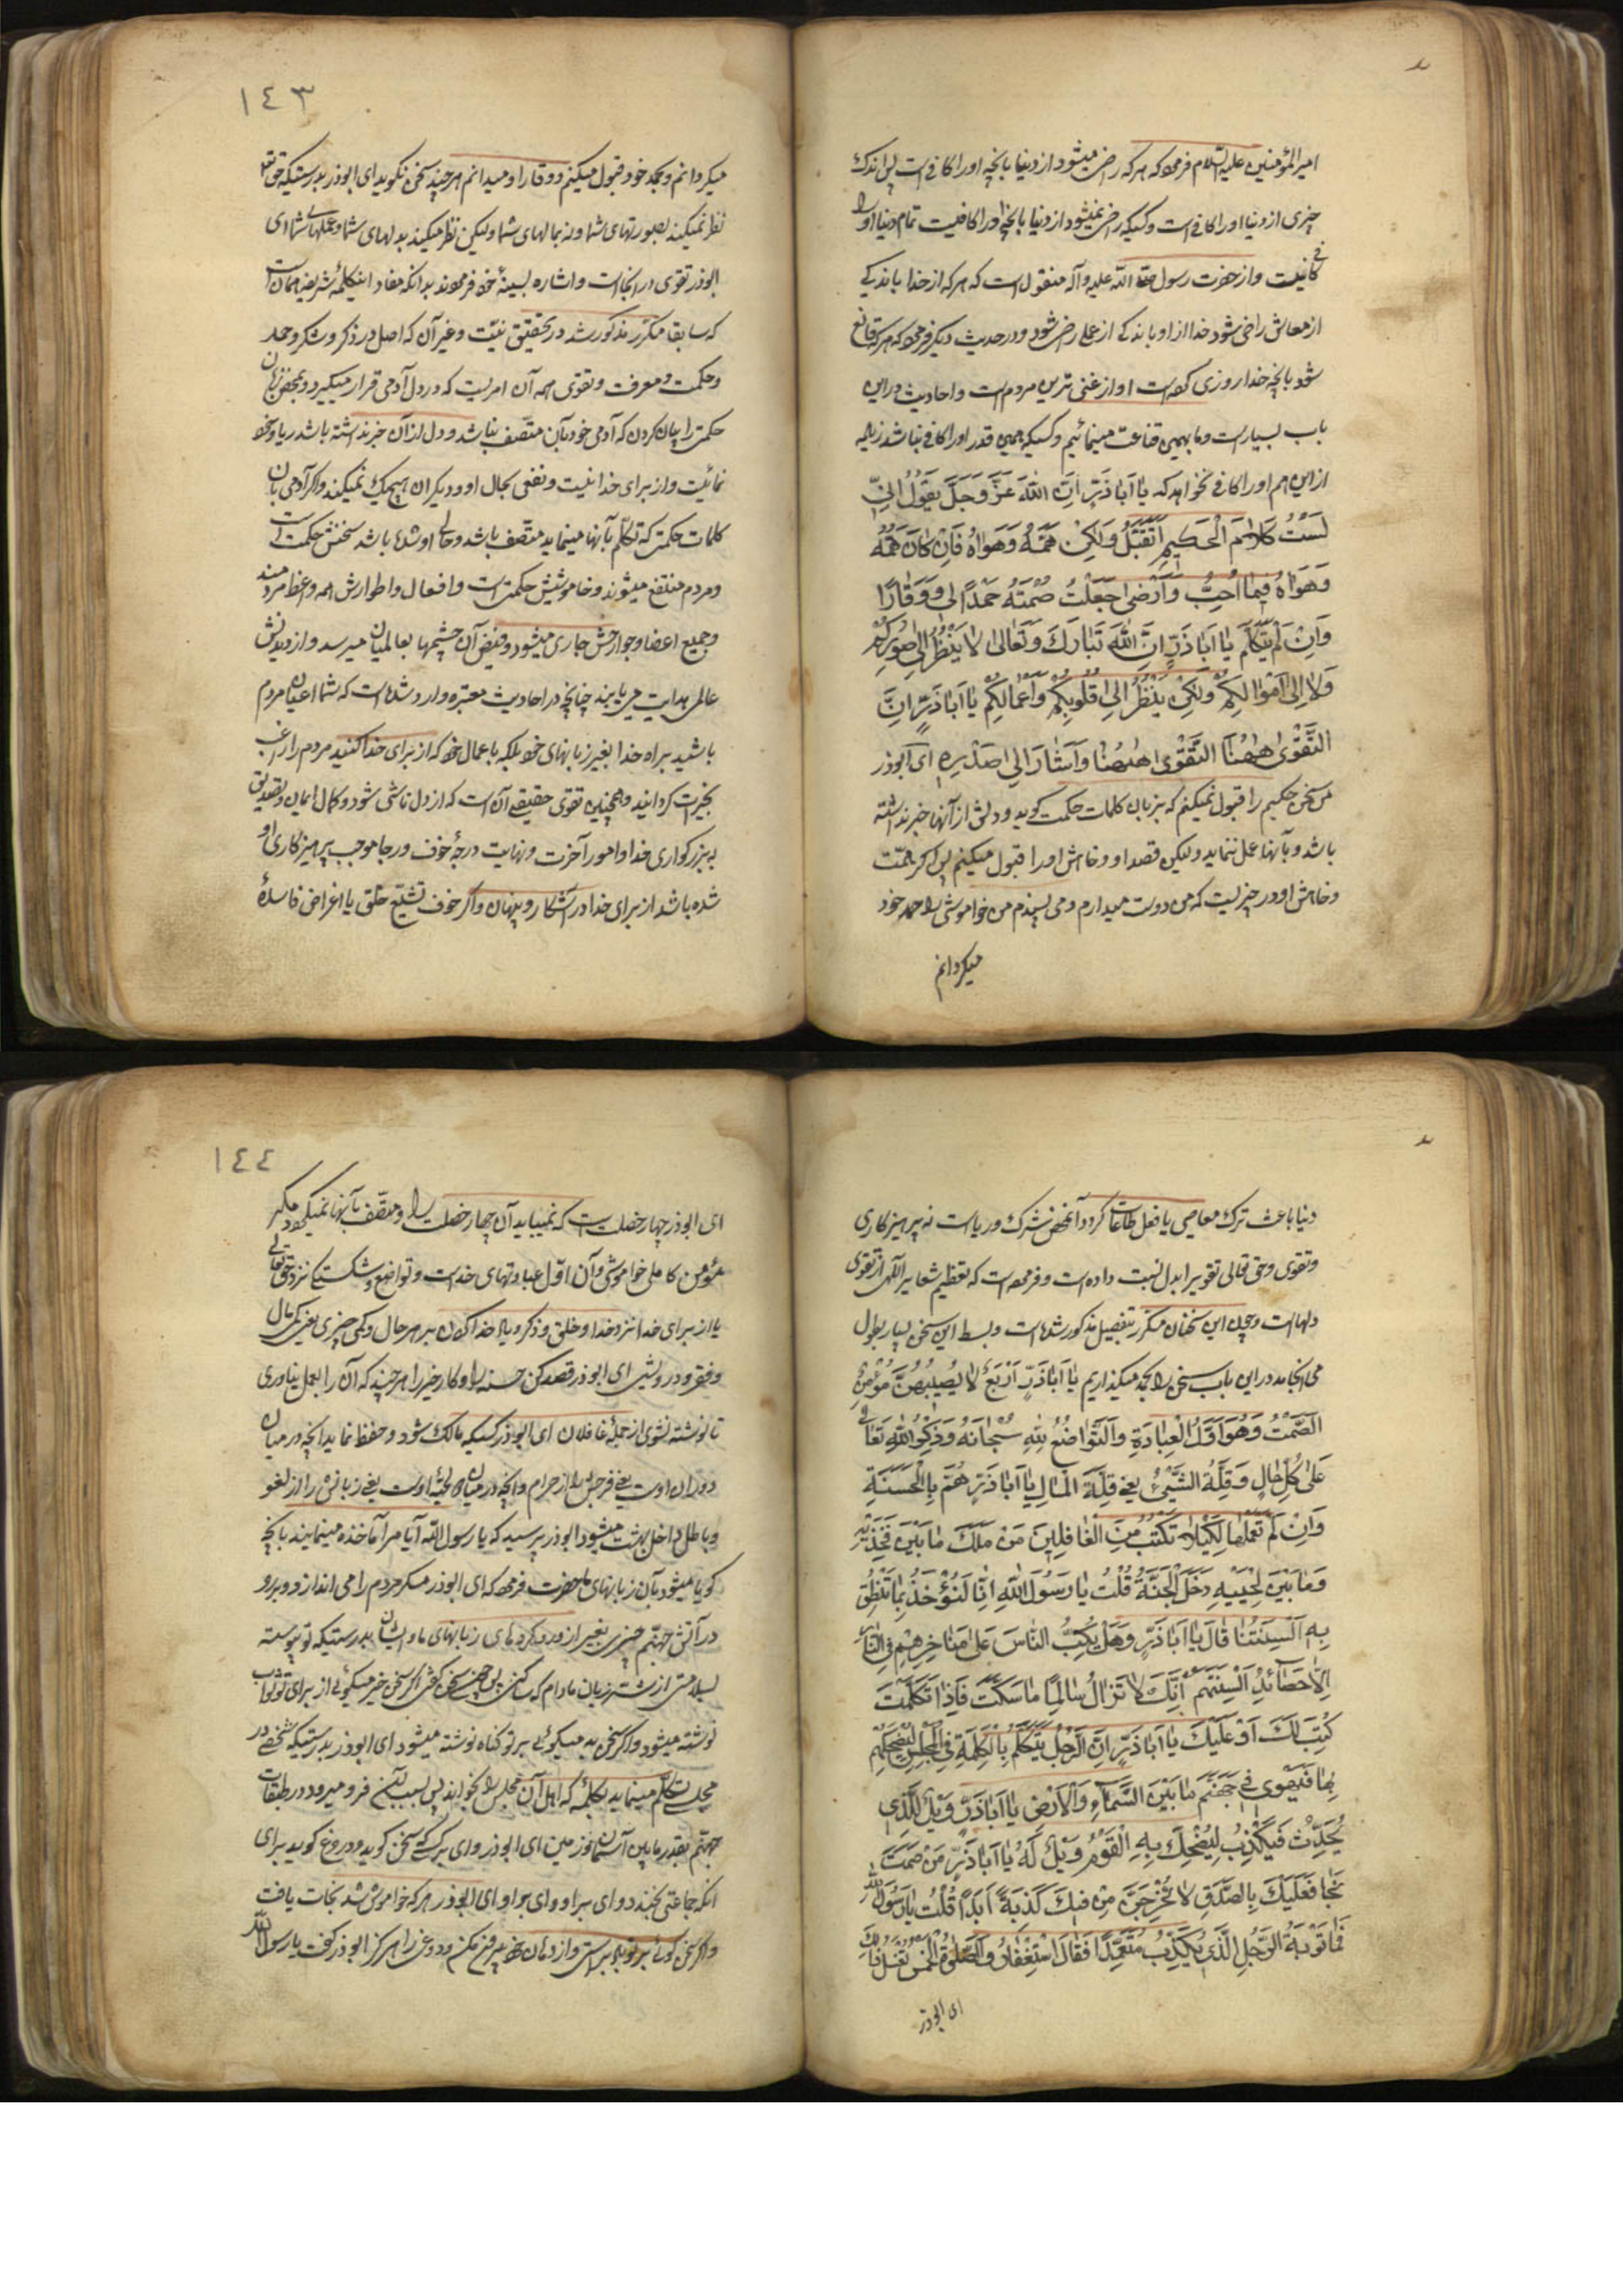 امیر المؤمنین علیه السلام فرموده که هر که راضی میشود از دنیا بانچه او را کافی است پس اندک
چیزی از دنیا او را کافی است و کسیکه راضی نمیشود از دنیا بانچه او را کافیست تمام دنیا او را
کافی نیست و از حضرت رسول صلی الله علیه وآله منقول است که هر که از خدا باندکی
از معاش راضی شود خدا از او باندکی از عمل راضی شود و در حدیث دیگر فرموده که هر که قانع
شود بانچه خدا روزی کرده است او از غنی ترین مردم است و احادیث در این
باب بسیار است و ما بهمین قناعت مینمائیم و کسیکه همین قدر او را کافی نباشد زیاده
از این هم او را کافی نخواهد که یا اَباذَرٍّ اِنَّ اللهَ عَزَّ وَجَلَّ یَقُولُ اِنّی
لَسْتُ کَلامَ الْحَکیمِ اَتَقَبَّلُ وَلکِنْ هَمَّهُ وَهَواهُ فَاِنْ کانَ هَمُّهُ
وَهَواهُ فیما اُحِبُّ وَاَرْضی جَعَلْتُ صَمْتَهُ حَمْداً لی وَوَقاراً
وَاِنْ لَمْ یَتَکَلَّمْ یا اَباذَرٍّ اِنَّ اللهَ تَبارَکَ وَتَعالی لا یَنْظُرُ اِلی صُوَرِکُمْ
وَلا اِلی اَمْوالِکُمْ وَلکِنْ یَنْظُرُ اِلی قُلُوبِکُمْ وَاَعْمالِکُمْ یا اَباذَرٍّ اِنَّ
التَّقْوی هٰهُنا التَّقْوی هٰهُنا وَاَشارَ اِلی صَدْرِهِ ای ابوذر
من سخن حکیم را قبول نمیکنم که بزبان کلمات حکمت گوید و دلش از آنها خبر نداشته
باشد و بآنها عمل ننماید ولیکن قصد او و خواهش او را قبول میکنم پس اگر همّت
و خواهش او در چیزیست که من دوست میدارم و می پسندم من خواموشی او را حمد خود
میگردانم
١٤٣
میگردانم و حمد خود قبول میکنم و وقار او میدانم هر چند سخن نگوید ای ابوذر بدرستیکه حق تعالی
نظر نمیکند بصورتهای شما و نه بمالهای شما ولیکن نظر میکند بدلهای شما و عملهای شما ای
ابوذر تقوی در اینجا است و اشاره بسینهٔ خود فرمودند بدانکه مفاد اینکلمهٔ شریفه همان است
که سابقا مکرّر مذکور شد در تحقیق نیّت و غیر آن که اصل در ذکر و شکر و حمد
و حکمت و معرفت و تقوی همه آن امریست که در دل آدمی قرار میگیرد و بمحض زبان
حکمتی را بیان کردن که آدمی خود بآن متّصف نباشد و دل از آن خبر نداشته باشد ریا و خود
نمائیست و از برای خدا نیست و نفعی بحال او و دیگران هیچیک نمیکند و اگر آدمی بآن
کلمات حکمتی که تکلّم بآنها مینماید متّصف باشد و حالی او شده باشد سخنش حکمت است
و مردم منتفع میشوند و خاموشیش حکمت است و افعال و اطوارش همه وعظ مردمند
و جمیع اعضا و جوارحش جاری میشود و فیض آن چشمها بعالمیان میرسد و از دیدنش
عالمی هدایت می یابند چنانچه در احادیث معتبره وارد شده است که شما داعیان مردم
باشید براه خدا بغیر زبانهای خود بلکه باعمال خود که از برای خدا کنید مردم را راغب
بخیرات گردانید و همچنین تقوی حقیقی آن است که از دل ناشی شود و کمال ایمان و تصدیق
به بزرگواری خدا و امور آخرت و نهایت درجهٔ خوف و رجا موجب پرهیزکاری او
شده باشد از برای خدا در آشکار و پنهان و اگر خوف تشنیع خلق یا اغراض فاسدهٔ
دنیا باعث ترک معاصی یا فعل طاعات گردد آن محض شرک و ریا است نه پرهیزکاری
و تقوی و حق تعالی تقوی را بدل نسبت داده است و فرموده است که تعظیم شعایر الهی از تقوی
دلها است و چون این سخنان مکرّر بتفصیل مذکور شده است و بسط این سخن بسیار بطول
می انجامد در این باب سخن را بحد میگذاریم یا اَباذَرٍّ اَرْبَعٌ لا یُصیبُهُنَّ مُؤْمِنٌ
الصَّمْتُ وَهُوَ اَوَّلُ الْعِبادَةِ وَالتَّواضُعُ لِلّهِ سُبْحانَهُ وَذِکْرُ اللهِ تَعالی
عَلی کُلِّ حالٍ وَقِلَّةُ الشَّیْءِ یعنی قِلَّةَ الْمالِ یا اَباذَرٍّ هُمَّ بِالْحَسَنَةِ
وَاِنْ لَمْ تَعْمَلْها لِکَیْلا تُکْتَبَ مِنَ الْغافِلینَ مَنْ مَلَکَ ما بَیْنَ فَخِذَیْهِ
وَما بَیْنَ لِحْیَیْهِ دَخَلَ الْجَنَّةَ قُلْتُ یا رَسُولَ اللهِ اِنّا لَنُؤْخَذُ بِما تَنْطِقُ
بِهِ اَلْسِنَتُنا قالَ یا اَباذَرٍّ وَهَلْ یَکُبُّ النّاسَ عَلی مَناخِرِهِمْ فِی النّارِ
اِلاّ حَصائِدُ اَلْسِنَتِهِمْ اِنَّکَ لا تَزالُ سالِماً ما سَکَتَّ فَاِذا تَکَلَّمْتَ
کُتِبَ لَکَ اَوْ عَلَیْکَ یا اَباذَرٍّ اِنَّ الرَّجُلَ یَتَکَلَّمُ بِالْکَلِمَةِ فِی الْمَجْلِسِ لِیُضْحِکَهُمْ
بِها فَیَهْوی فی جَهَنَّمَ ما بَیْنَ السَّماءِ وَالْاَرْضِ یا اَباذَرٍّ وَیْلٌ لِلَّذی
یُحَدِّثُ فَیَکْذِبُ لِیُضْحِکَ بِهِ الْقَوْمَ وَیْلٌ لَهُ یا اَباذَرٍّ مَنْ صَمَتَ
نَجا فَعَلَیْکَ بِالصِّدْقِ لا تُخْرِجَنَّ مِنْ فیکَ کَذِبَةً اَبَداً قُلْتُ یا رَسُولَ اللهِ
فَما تَوْبَةُ الرَّجُلِ الَّذی یَکْذِبُ مُتَعَمِّداً فَقالَ اسْتِغْفارُ وَالصَّلَوةُ الْخَمْسُ تَغْسِلُ ذلِکَ
ای ابوذر
١٤٤
ای ابوذر چهار خصلت است که نمییابد آن چهار خصلت را و متّصف بآنها نمیگردد مگر
مؤمن کاملی خواموشی و آن اوّل عبادتهای خداست و تواضع و شکستگی نزد حق تعالی
یا از برای خدا نزد خدا و خلق و ذکر و یاد خدا کردن بر هر حال و کمی چیزی یعنی کمی مال
و فقر و درویشی ای ابوذر قصد کن حسنه را و کار خیر را هر چند که آن را بعمل نیاوری
تا نوشته نشوی از جملهٔ غافلان ای ابوذر کسیکه مالک شود و حفظ نماید انچه در میان
دو ران اوست یعنی فرجش را از حرام و انچه در میان دو لحیهٔ اوست یعنی زبانش را از لغو
و باطل داخل بهشت میشود ابوذر پرسید که یا رسول الله آیا ما را مآخذه مینمایند بانچه
گویا میشود بآن زبانهای ما حضرت فرمود که ای ابوذر مگر مردم را می اندازد بر رو
در آتش جهنّم چیزی بغیر از درو کردهای زبانهای ایشان بدرستیکه تو پیوسته
بسلامتی از شر زبان مادام که ساکتی پس چون سخن گفتی اگر سخن خیر میگوئی از برای تو ثواب
نوشته میشود و اگر سخن بد میگوئی بر تو گناه نوشته میشود ای ابوذر بدرستیکه شخصی در
مجلسی تکلّم مینماید بکلمهٔ که اهل آن مجلس را بخنداند پس بسبب آن فرو میرود در طبقات
جهنّم بقدر مابین آسمان و زمین ای ابوذر وای بر کسی که سخن گوید و دروغ گوید برای
انکه جماعتی بخندد وای بر او وای بر او ای ابوذر هر که خواموش شد نجات یافت
و اگر سخن گوئی بر تو باد براستی و از دهان خود بیرون مکن دروغی را هرگز ابوذر گفت یا رسول الله